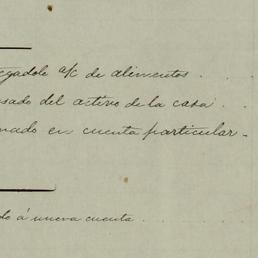 gadole a/c de alimentos . .
sado del activo de la casa . .
nado en cuenta particular -
do á nueva cuenta . . . . .